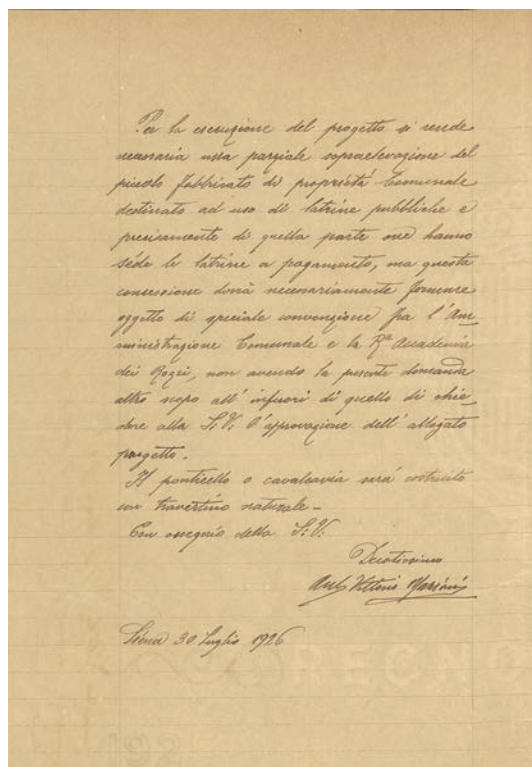 Per la esecuzione del progetto si rende
necessaria una parziale sopraelevazione del
piccolo fabbricato di proprietà Comunale
destinato ad uso di latrine pubbliche e
precisamente di quella parte ove hanno
séde le latrine a pagamento, ma questa
concessione dovrà necessariamente formare
oggetto di speciale convenzione fra l'Am=
ministrazione Comunale e la R.ª Accademia
dei Rozzi, non avendo la presente domanda
altro scopo all'infuori di quello di chie=
dere alla S.V. l'approvazione dell'allegato
progetto.
Il ponticello o cavalcavia sarà costruito
con travertino naturale.-
Con ossequio della S.V.
Devotissimo
Vittorio Mariani
Siena 30 Luglio 1926